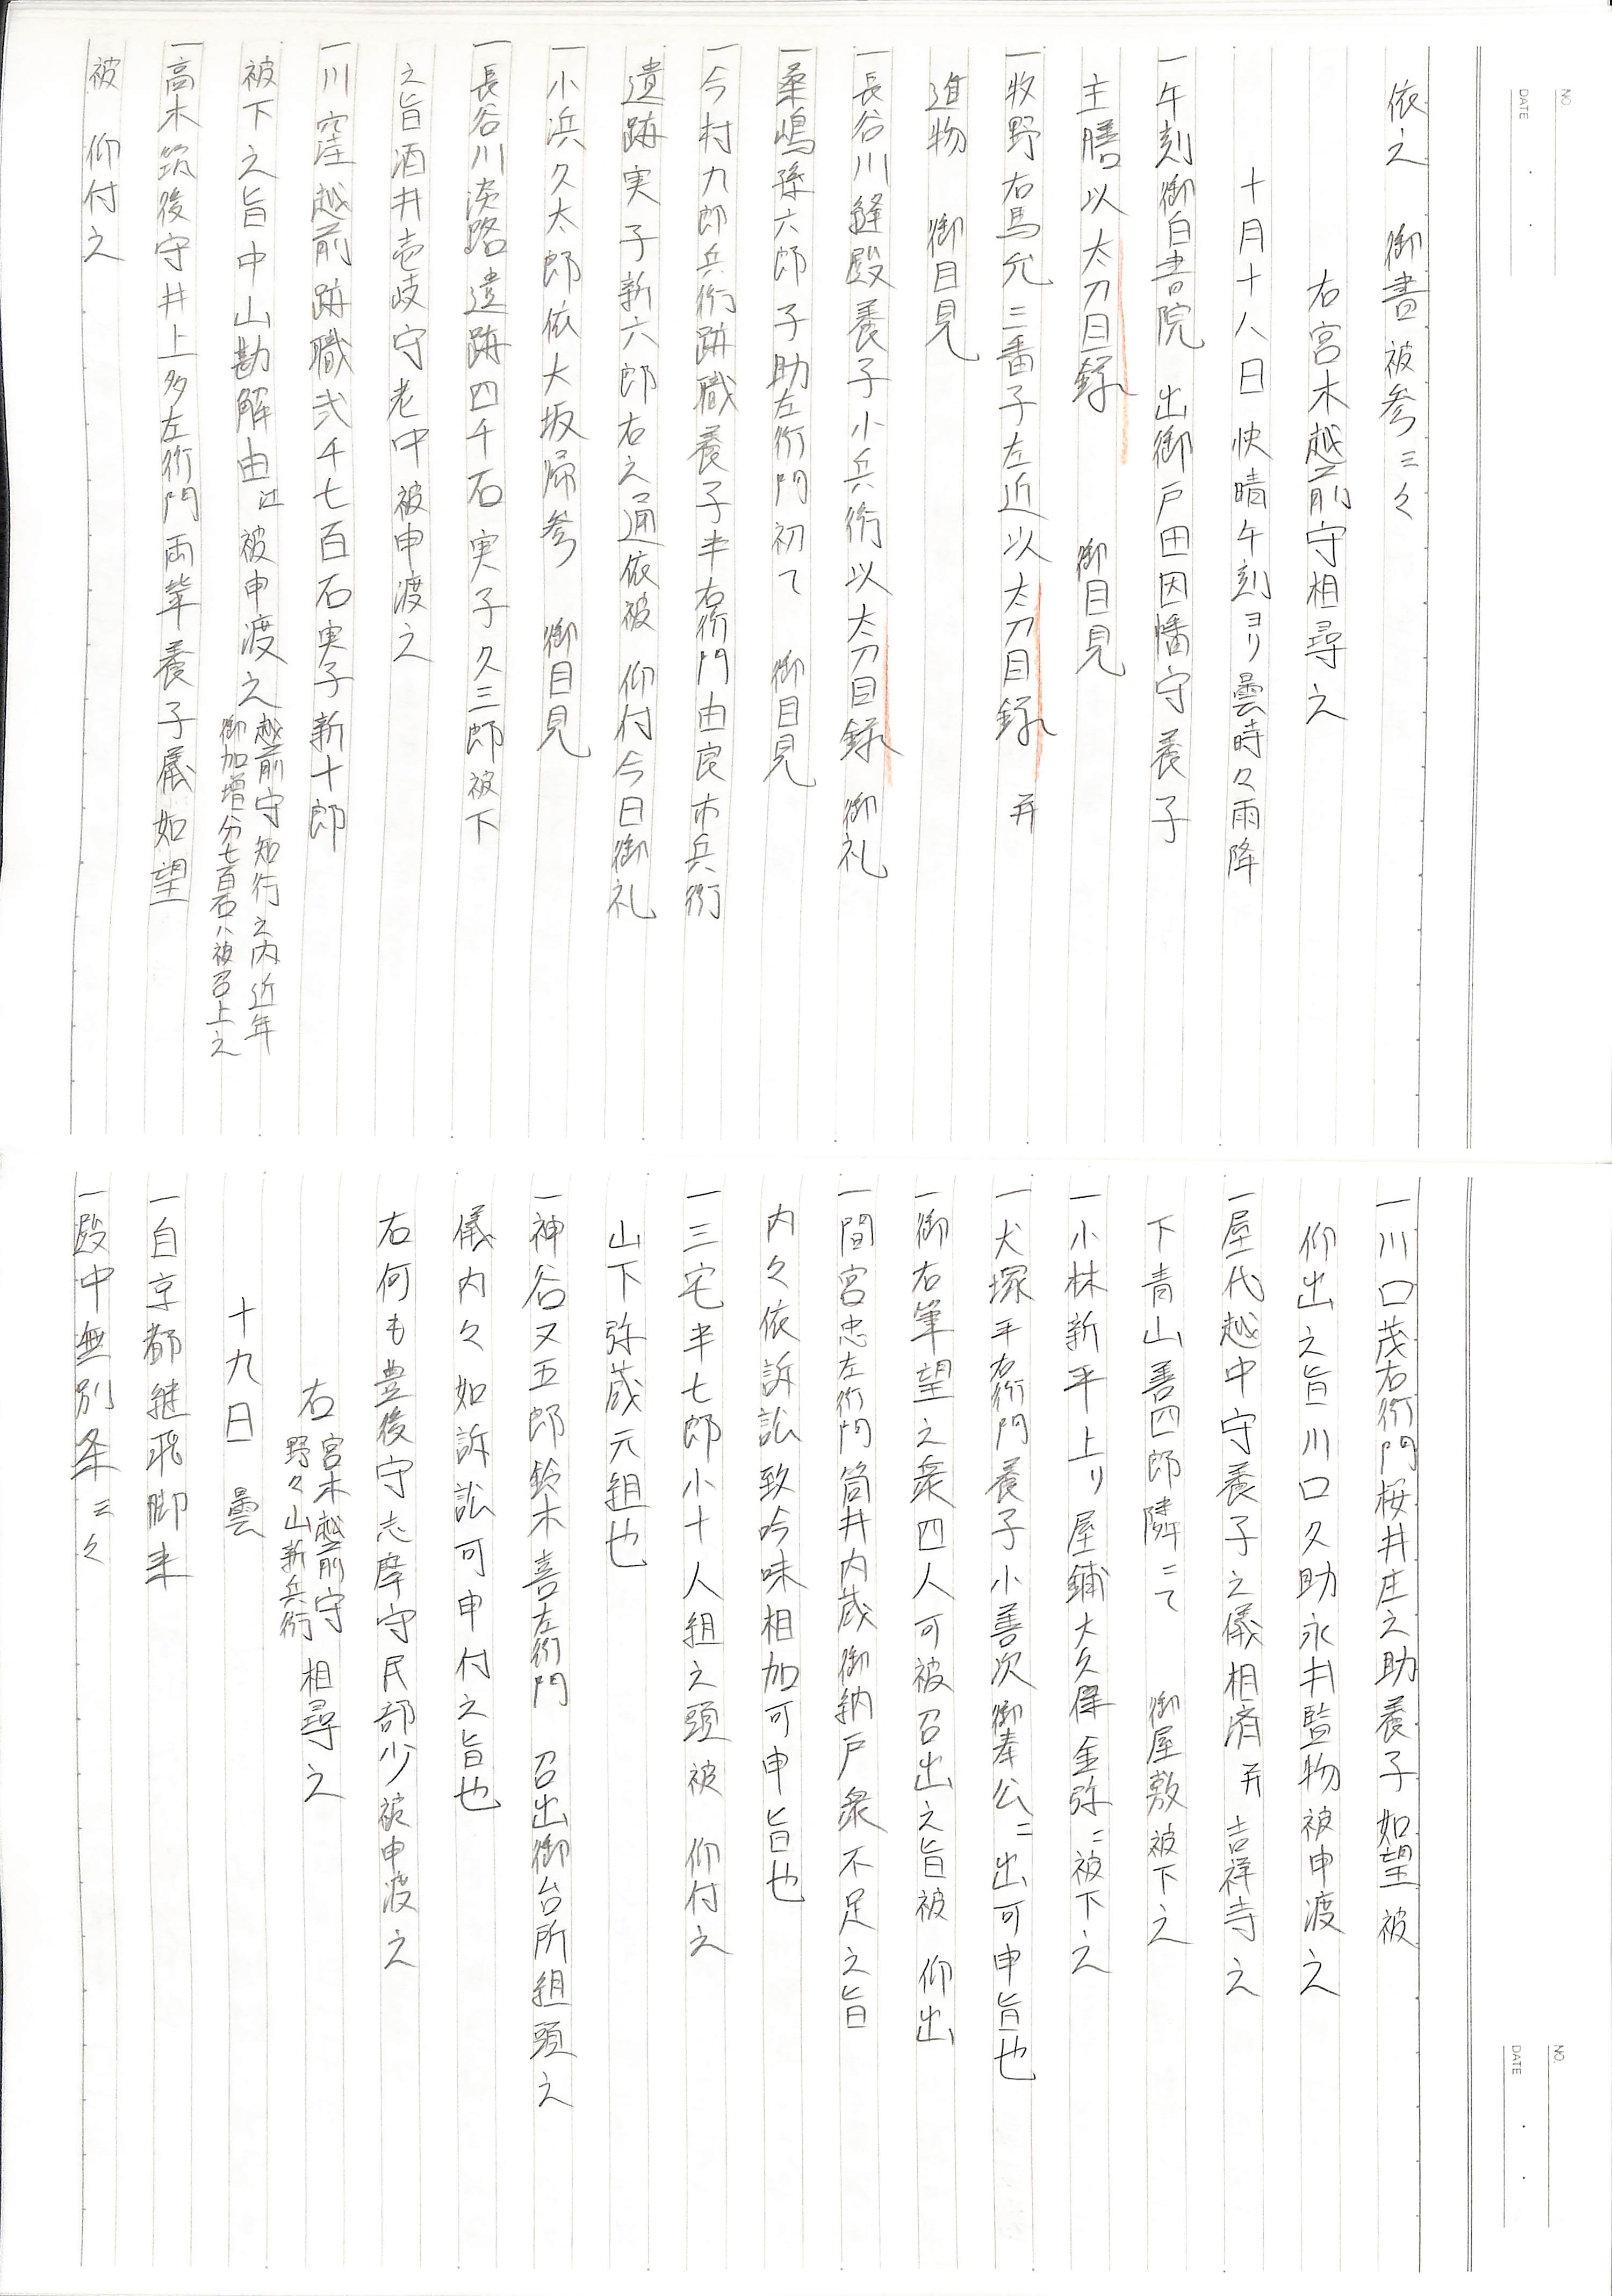 依之　御書被参云々
右宮木越前守相尋之
十月十八日　快晴午刻ヨリ曇時々雨降
一午刻御白書院　出御戸田因幡守養子
主膳以太刀目録　御目見
一牧野右馬允三番子左近以太刀目録　并
進物　御目見
一長谷川縫殿養子小兵衛以太刀目録　御礼
一桑嶋孫六郎子助左衛門初て　御目見
一今村九郎兵衛跡職養子半右衛門由良市兵衛
遺跡実子新六郎右之通依被　仰付今日御礼
一小浜久太郎依大坂帰参　御目見
一長谷川淡路遺跡四千石実子久三郎被下
之旨酒井壱岐守老中被申渡之
一川窪越前跡職弐千七百石実子新十郎
被下之旨中山勘解由江被申渡之越前守知行之内近年
御加増分七百石ハ被召上之
一高木筑後守井上多左衛門両輩養子儀如望
被　仰付之
一川口茂右衛門桜井庄之助養子如望被
仰出之旨川口久助永井監物被申渡之
一屋代越中守養子之儀相済并吉祥寺之
下青山善四郎隣ニて　御屋敷被下之
一小林新平上リ屋鋪大久保金弥ニ被下之
一犬塚平右衛門養子小善次御奉公ニ出可申旨也
一御右筆望之衆四人可被召出之旨被　仰出
一間宮忠左衛門筒井内蔵御納戸衆不足之旨
内々依訴訟致吟味相加可申旨也
一三宅半七郎小十人組之頭被　仰付之
山下弥蔵元組也
一神谷又五郎鈴木喜左衛門　召出御台所組頭之
儀内々如訴訟可申付之旨也
右何も豊後守志摩守民部少被申渡之
右宮木越前守
野々山新兵衛相尋之
十九日　曇
一自京都継飛脚来
一殿中無別条云々
NO.
DATE　・　・
NO.
DATE　・　・